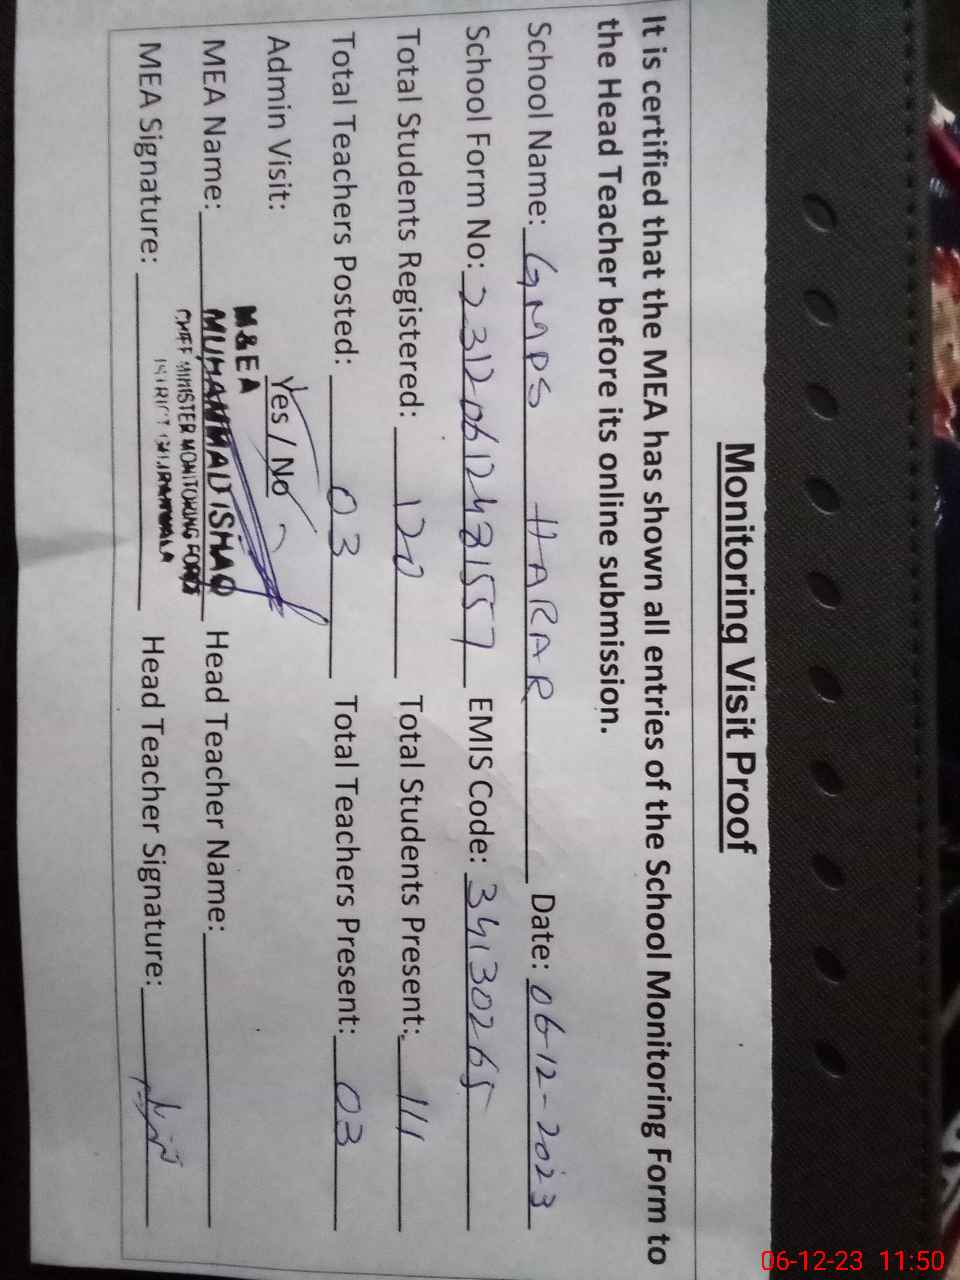 Monitoring Visit Proof
It is certified that the MEA has shown all entries of the School Monitoring Form to
the Head Teacher before its online submission.
School Name: GMPS HARAR Date: 06-12-2023
School Form No: 2312061248157 EMIS Code: 34130265
Total Students Registered: 120 Total Students Present: 111
Total Teachers Posted: 03 Total Teachers Present: 03
Admin Visit: Yes / No
M&EA
MEA Name: MUHAMMAD ISHAQ Head Teacher Name:
CHIEF MINISTER MONITORING FORCE
DISTRICT GUJRANWALA
MEA Signature: Head Teacher Signature:
06-12-23 11:50